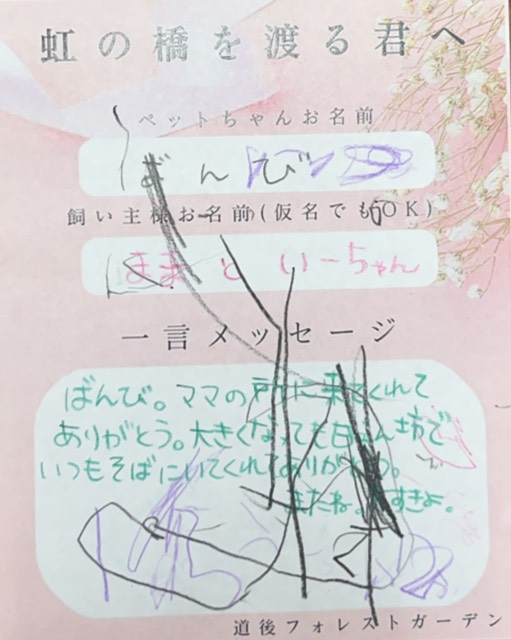 虹の橋を渡る君へ
ペットちゃんお名前
ばんび
飼い主様お名前(仮名でもOK)
ままといーちゃん
一言メッセージ
ばんび。ママの所に来てくれて
ありがとう。大きくなっても甘えん坊で
いつもそばにいてくれてありがとう。
またね。すきよ。
道後フォレストガーデン